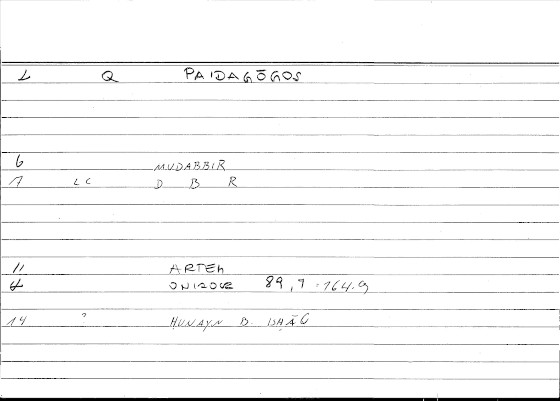 L Q PAIDAGŌGOS
6 MUDABBIR
7 LC D B R
11 ARTEM
ONIROCR 89,7 - 164.9
14 ° HUNAYN B. ISḤĀQ